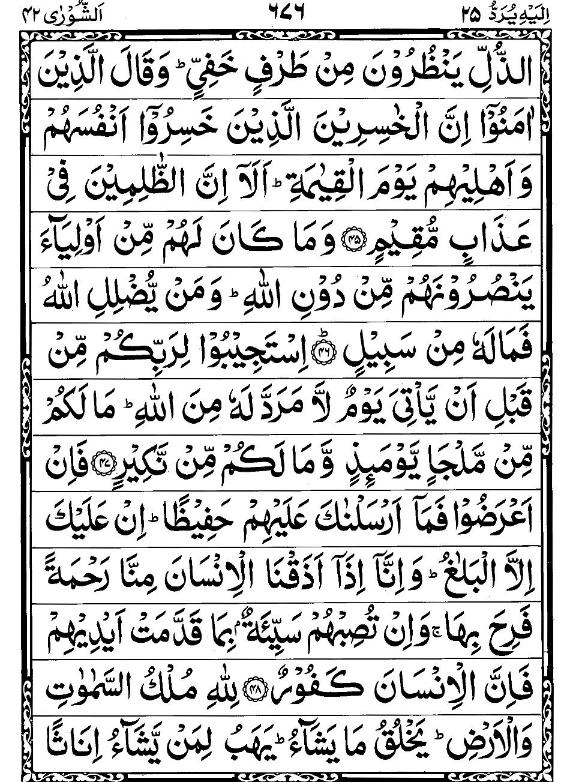 اِلَيْهِ يُرَدُّ ٢٥ ٦٧٦ اَلشُّوْرٰى ٤٢
الذُّلِّ يَنْظُرُوْنَ مِنْ طَرْفٍ خَفِيٍّ ؕ وَقَالَ الَّذِيْنَ
اٰمَنُوْۤا اِنَّ الْخٰسِرِيْنَ الَّذِيْنَ خَسِرُوْۤا اَنْفُسَهُمْ
وَاَهْلِيْهِمْ يَوْمَ الْقِيٰمَةِ ؕ اَلَاۤ اِنَّ الظّٰلِمِيْنَ فِيْ
عَذَابٍ مُّقِيْمٍ ﴿٤٥﴾ وَمَا كَانَ لَهُمْ مِّنْ اَوْلِيَآءَ
يَنْصُرُوْنَهُمْ مِّنْ دُوْنِ اللّٰهِ ؕ وَمَنْ يُّضْلِلِ اللّٰهُ
فَمَا لَهٗ مِنْ سَبِيْلٍ ﴿٤٦﴾ؕ اِسْتَجِيْبُوْا لِرَبِّكُمْ مِّنْ
قَبْلِ اَنْ يَّاْتِيَ يَوْمٌ لَّا مَرَدَّ لَهٗ مِنَ اللّٰهِ ؕ مَا لَكُمْ
مِّنْ مَّلْجَاٍ يَّوْمَئِذٍ وَّمَا لَكُمْ مِّنْ نَّكِيْرٍ ﴿٤٧﴾ فَاِنْ
اَعْرَضُوْا فَمَاۤ اَرْسَلْنٰكَ عَلَيْهِمْ حَفِيْظًا ؕ اِنْ عَلَيْكَ
اِلَّا الْبَلٰغُ ؕ وَاِنَّاۤ اِذَاۤ اَذَقْنَا الْاِنْسَانَ مِنَّا رَحْمَةً
فَرِحَ بِهَا ۚ وَاِنْ تُصِبْهُمْ سَيِّئَةٌۢ بِمَا قَدَّمَتْ اَيْدِيْهِمْ
فَاِنَّ الْاِنْسَانَ كَفُوْرٌ ﴿٤٨﴾ لِلّٰهِ مُلْكُ السَّمٰوٰتِ
وَالْاَرْضِ ؕ يَخْلُقُ مَا يَشَآءُ ؕ يَهَبُ لِمَنْ يَّشَآءُ اِنَاثًا